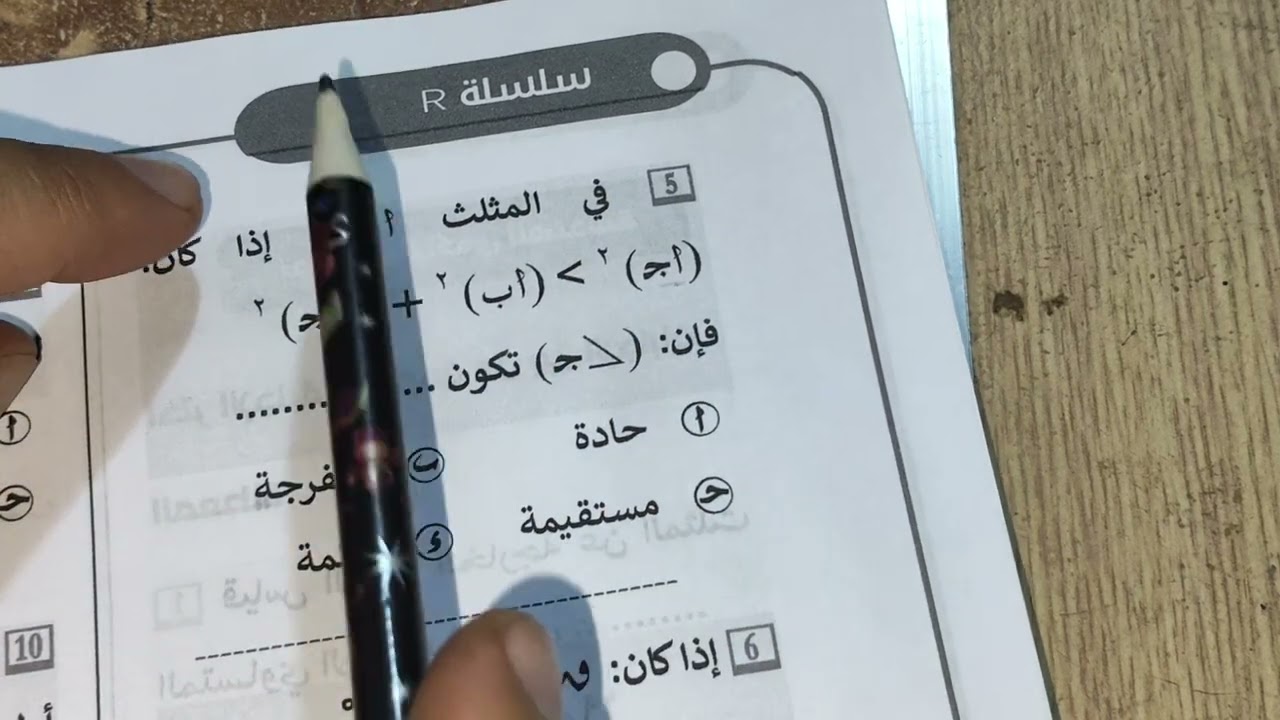 سلسلة R
5 في المثلث أ إذا كان:
(أجـ)٢ > (أب)٢ + جـ)٢
فإن: (⦣جـ) تكون ............
أ حادة
ب فرجة
حـ مستقيمة
ء مة
6 إذا كان: ق
10
أ
حـ